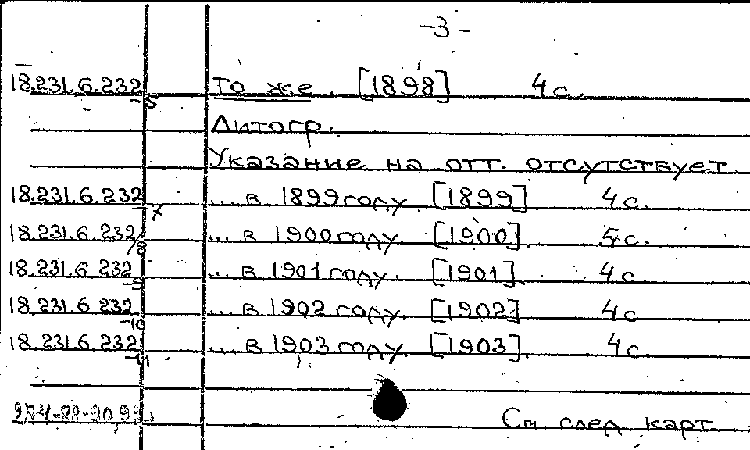 -3-
18.231.6.232 То же. [1898] 4с.
Литогр.
Указание на отт. отсутствует
18.231.6.232 ... в 1899 году. [1899] 4с.
-7
18.231.6.232 ... в 1900 году. [1900]. 5с.
18.231.6.232 ... в 1901 году. [1901] 4с.
18.231.6.232 ... в 1902 году. [1902] 4с
-10
18.231.6.232 ... в 1903 году [1903]. 4с.
-11
См след. карт.